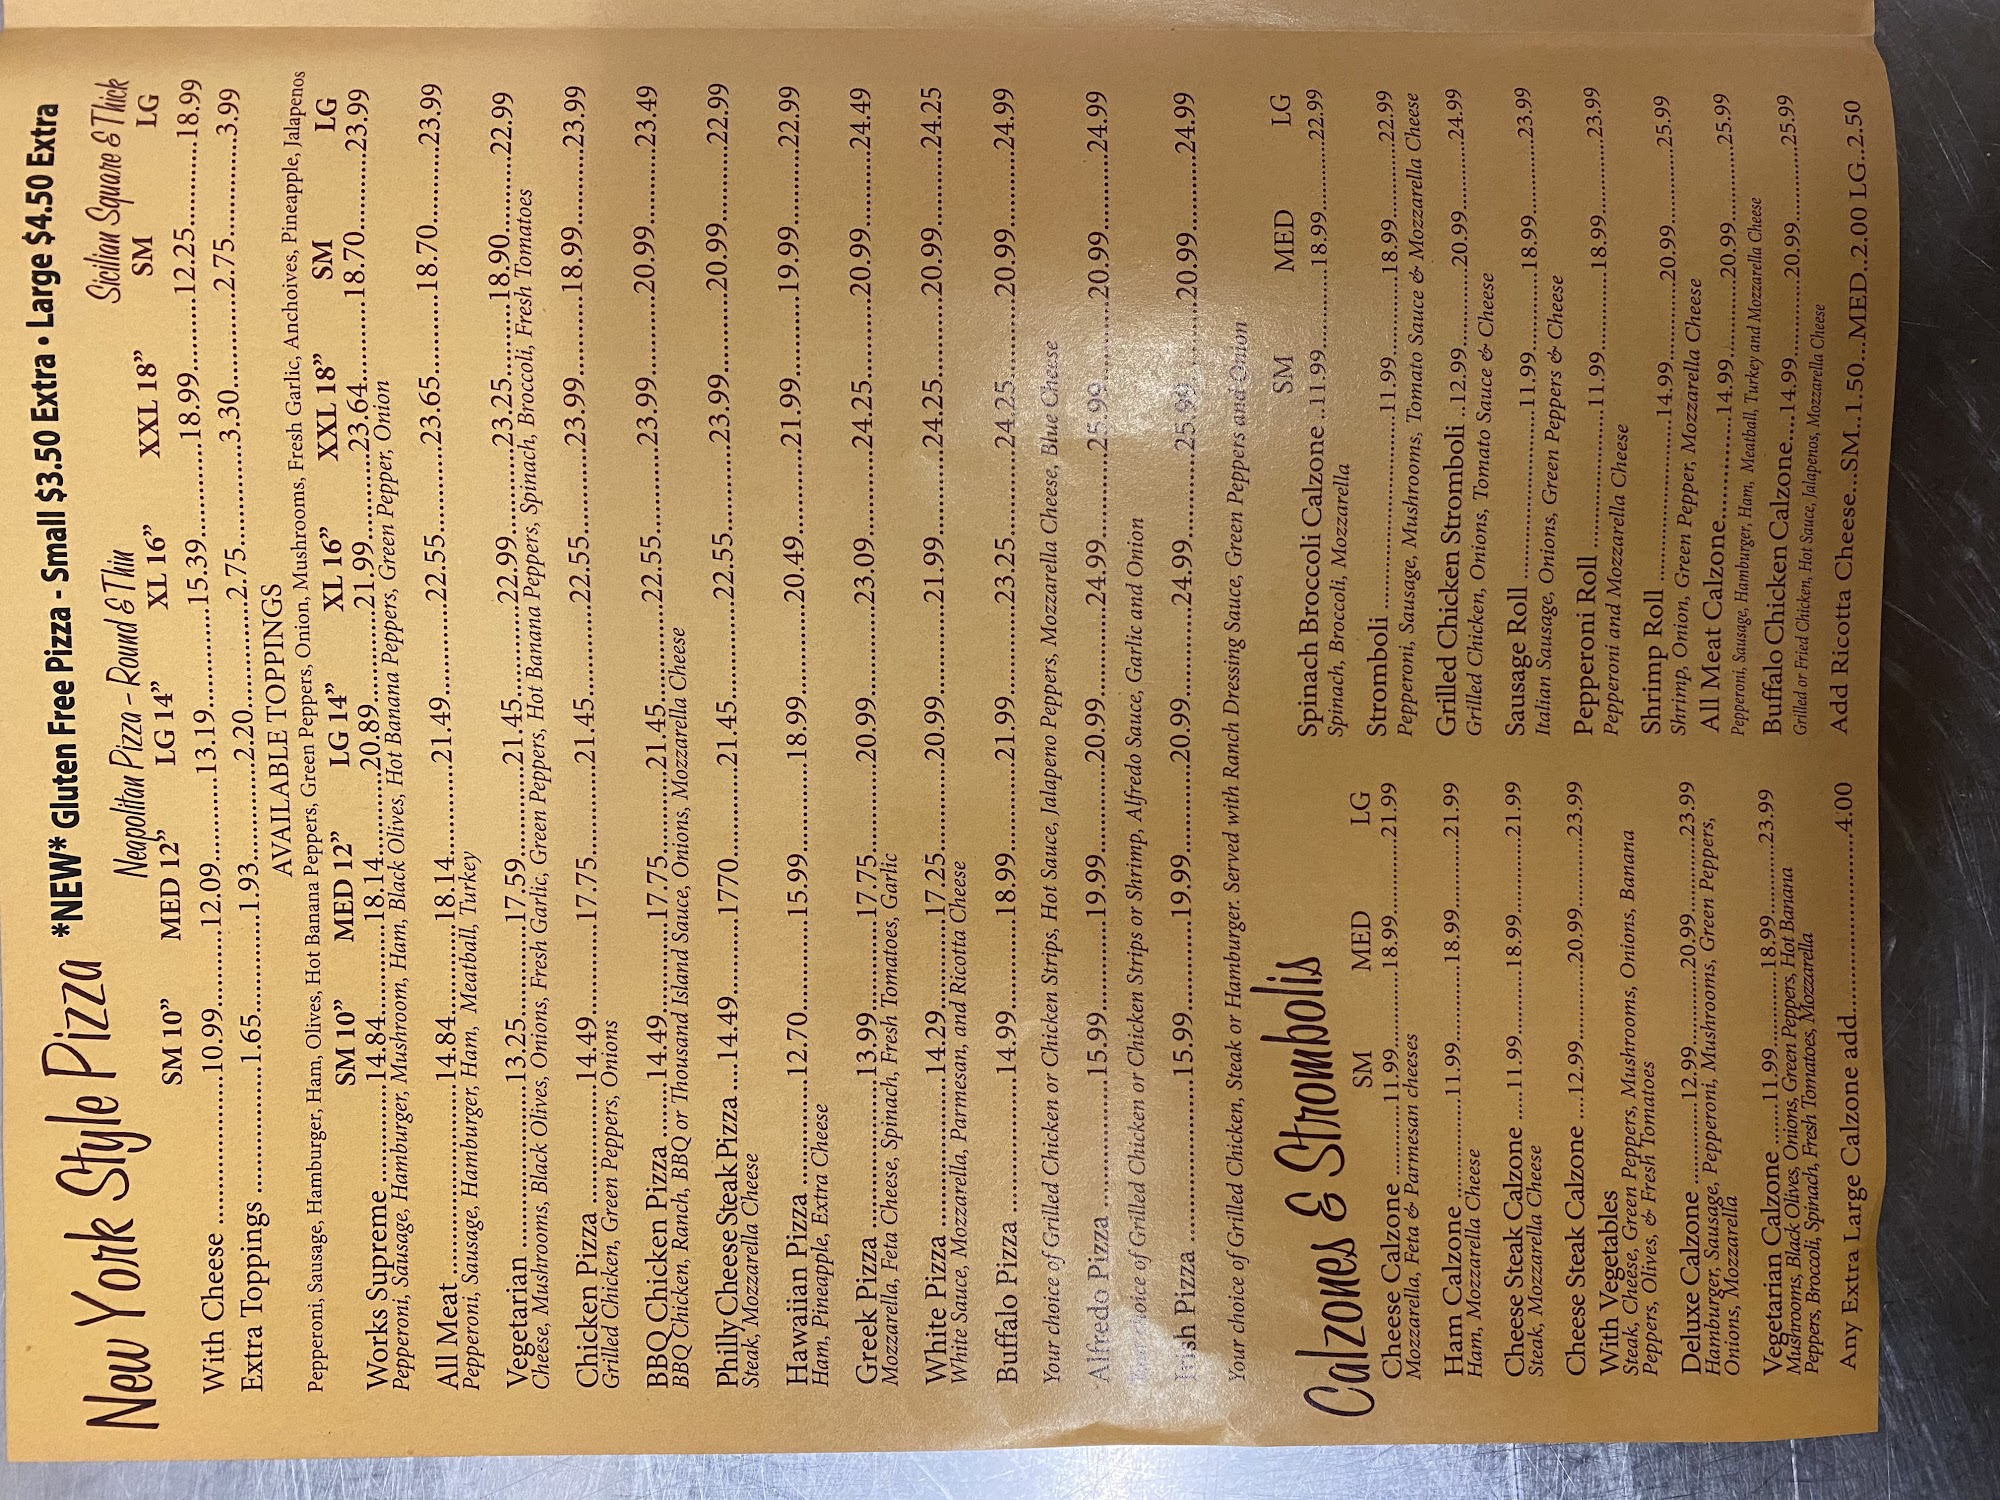 New York Style Pizza *NEW* Gluten Free Pizza - Small $3.50 Extra • Large $4.50 Extra
Neapolitan Pizza - Round & Thin Sicilian Square & Thick
SM 10” MED 12” LG 14” XL 16” XXL 18” SM LG
With Cheese ......10.99......12.09......13.19......15.39......18.99......12.25......18.99
Extra Toppings ......1.65......1.93......2.20......2.75......3.30......2.75......3.99
AVAILABLE TOPPINGS
Pepperoni, Sausage, Hamburger, Ham, Olives, Hot Banana Peppers, Green Peppers, Onion, Mushrooms, Fresh Garlic, Anchoives, Pineapple, Jalapenos
SM 10” MED 12” LG 14” XL 16” XXL 18” SM LG
Works Supreme ......14.84......18.14......20.89......21.99......23.64......18.70......23.99
Pepperoni, Sausage, Hamburger, Mushroom, Ham, Black Olives, Hot Banana Peppers, Green Pepper, Onion
All Meat ......14.84......18.14......21.49......22.55......23.65......18.70......23.99
Pepperoni, Sausage, Hamburger, Ham, Meatball, Turkey
Vegetarian ......13.25......17.59......21.45......22.99......23.25......18.90......22.99
Cheese, Mushrooms, Black Olives, Onions, Fresh Garlic, Green Peppers, Hot Banana Peppers, Spinach, Broccoli, Fresh Tomatoes
Chicken Pizza ......14.49......17.75......21.45......22.55......23.99......18.99......23.99
Grilled Chicken, Green Peppers, Onions
BBQ Chicken Pizza ......14.49......17.75......21.45......22.55......23.99......20.99......23.49
BBQ Chicken, Ranch, BBQ or Thousand Island Sauce, Onions, Mozzarella Cheese
Philly Cheese Steak Pizza ....14.49......1770......21.45......22.55......23.99......20.99......22.99
Steak, Mozzarella Cheese
Hawaiian Pizza ......12.70......15.99......18.99......20.49......21.99......19.99......22.99
Ham, Pineapple, Extra Cheese
Greek Pizza ......13.99......17.75......20.99......23.09......24.25......20.99......24.49
Mozzarella, Feta Cheese, Spinach, Fresh Tomatoes, Garlic
White Pizza ......14.29......17.25......20.99......21.99......24.25......20.99......24.25
White Sauce, Mozzarella, Parmesan, and Ricotta Cheese
Buffalo Pizza ......14.99......18.99......21.99......23.25......24.25......20.99......24.99
Your choice of Grilled Chicken or Chicken Strips, Hot Sauce, Jalapeno Peppers, Mozzarella Cheese, Blue Cheese
Alfredo Pizza ......15.99......19.99......20.99......24.99......25.99......20.99......24.99
Your choice of Grilled Chicken or Chicken Strips or Shrimp, Alfredo Sauce, Garlic and Onion
Irish Pizza ......15.99......19.99......20.99......24.99......25.99......20.99......24.99
Your choice of Grilled Chicken, Steak or Hamburger. Served with Ranch Dressing Sauce, Green Peppers and Onion
Calzones & Strombolis
SM MED LG
Cheese Calzone ......11.99......18.99......21.99
Mozzarella, Feta & Parmesan cheeses
Ham Calzone ......11.99......18.99......21.99
Ham, Mozzarella Cheese
Cheese Steak Calzone .....11.99......18.99......21.99
Steak, Mozzarella Cheese
Cheese Steak Calzone ....12.99......20.99......23.99
With Vegetables
Steak, Cheese, Green Peppers, Mushrooms, Onions, Banana
Peppers, Olives, & Fresh Tomatoes
Deluxe Calzone ......12.99......20.99......23.99
Hamburger, Sausage, Pepperoni, Mushrooms, Green Peppers,
Onions, Mozzarella
Vegetarian Calzone ......11.99......18.99......23.99
Mushrooms, Black Olives, Onions, Green Peppers, Hot Banana
Peppers, Broccoli, Spinach, Fresh Tomatoes, Mozzarella
Any Extra Large Calzone add......4.00
SM MED LG
Spinach Broccoli Calzone ..11.99......18.99......22.99
Spinach, Broccoli, Mozzarella
Stromboli ......11.99......18.99......22.99
Pepperoni, Sausage, Mushrooms, Tomato Sauce & Mozzarella Cheese
Grilled Chicken Stromboli ..12.99......20.99......24.99
Grilled Chicken, Onions, Tomato Sauce & Cheese
Sausage Roll ......11.99......18.99......23.99
Italian Sausage, Onions, Green Peppers & Cheese
Pepperoni Roll ......11.99......18.99......23.99
Pepperoni and Mozzarella Cheese
Shrimp Roll ......14.99......20.99......25.99
Shrimp, Onion, Green Pepper, Mozzarella Cheese
All Meat Calzone......14.99......20.99......25.99
Pepperoni, Sausage, Hamburger, Ham, Meatball, Turkey and Mozzarella Cheese
Buffalo Chicken Calzone....14.99......20.99......25.99
Grilled or Fried Chicken, Hot Sauce, Jalapenos, Mozzarella Cheese
Add Ricotta Cheese...SM..1.50...MED..2.00 LG..2.50